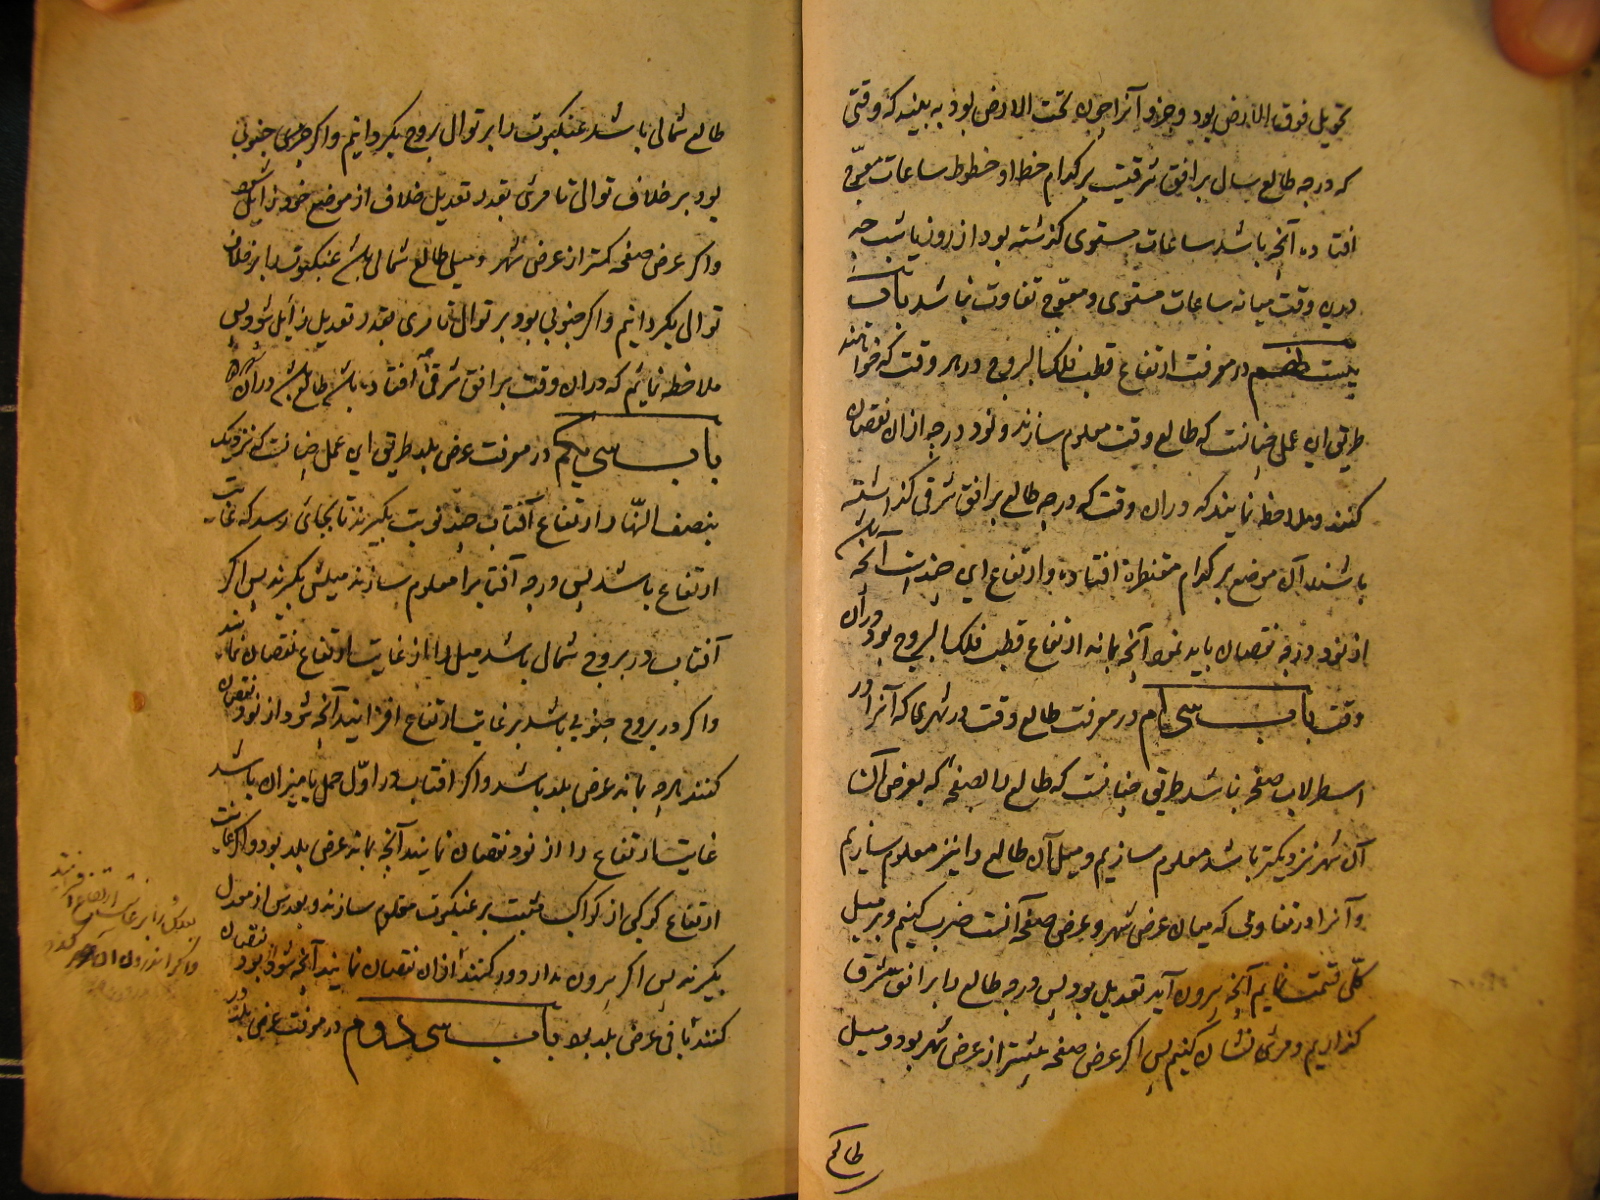 تحویل فوق الارض بود و جزو آنرا چون تحت الارض بود به بینید که وقتی
که درجه طالع سال بر افق شرقیست بر کدام خط از خطوط ساعات معوج
افتاده آنچه باشد ساعات مستوی گذشته بود از روز یا شب چه
درین وقت میانه ساعات مستوی و معوج تفاوت نباشد باب
بیست نهم در معرفت ارتفاع قطب فلک البروج در هر وقت که خواهند
طریق این عمل چنانست که طالع وقت معلوم سازند و نود درجه از ان نقصان
کنند و ملاحظه نمایند که دران وقت که درجه طالع بر افق شرقی گذاشته
باشند آن موضع بر کدام مقنطره افتاده و ارتفاع این چند است آنچه باشد
از نود درجه نقصان باید نمود آنچه بماند ارتفاع قطب فلک البروج بود دران
وقت باب سی ام در معرفت طالع وقت در شهری که آنرا در
اسطرلاب صفحه نباشد طریقش چنانست که طالع را بصفحه که بعرض آن
آن شهر نزدیکتر باشد معلوم سازیم و میل آن طالع را نیز معلوم سازیم
و آنرا در تفاوتی که میان عرض شهر و عرض صفحه آنست ضرب کنیم و بر میل
کلی قسمت نمایم آنچه بیرون آید تعدیل بود پس درجه طالع را بر افق مشرق
گذاریم و مری نشان کنیم پس اگر عرض صفحه بیشتر از عرض شهر بود و میل
طالع
طالع شمالی باشد عنکبوت را بر توالی بروج بگردانیم و اگر جنوبی
بود بر خلاف توالی تا مری بقدر تعدیل خلاف از موضع خود زائل شود
و اگر عرض صفحه کمتر از عرض شهر و میل طالع شمالی باشد عنکبوت را بر خلاف
توالی بگردانیم و اگر جنوبی بود بر توالی تا مری بقدر تعدیل زائل شود پس
ملاحظه نمائیم که دران وقت بر افق شرقی افتاده باشد طالع باشد دران
باب سی یکم در معرفت عرض بلد طریق این عمل چنانست که نزدیک
بنصف النهار ارتفاع آفتاب چند نوبت بگیرند تا بجائی رسد که غایت
ارتفاع باشد پس درجه آفتاب را معلوم سازند میلش بگیرند پس اگر
آفتاب در بروج شمالی باشد میل را از غایت ارتفاع نقصان نمایند
و اگر در بروج جنوبی باشد بر غایت ارتفاع افزایند آنچه شود از نود نقصان
کنند هرچه بماند عرض بلد باشد و اگر افتاب در اول حمل یا میزان باشد
غایت ارتفاع را از نود نقصان نمایند آنچه بماند عرض بلد بود و اگر غایت
ارتفاع کوکبی از کواکب مثبت بر عنکبوت معلوم سازند و بعدش از معدل
بگیرند پس اگر بیرون مدار دور کنند ازان نقصان نمایند آنچه شود از نود نقصان
کنند باقی عرض بلد بود باب سی دوم در معرفت عرض بلد در